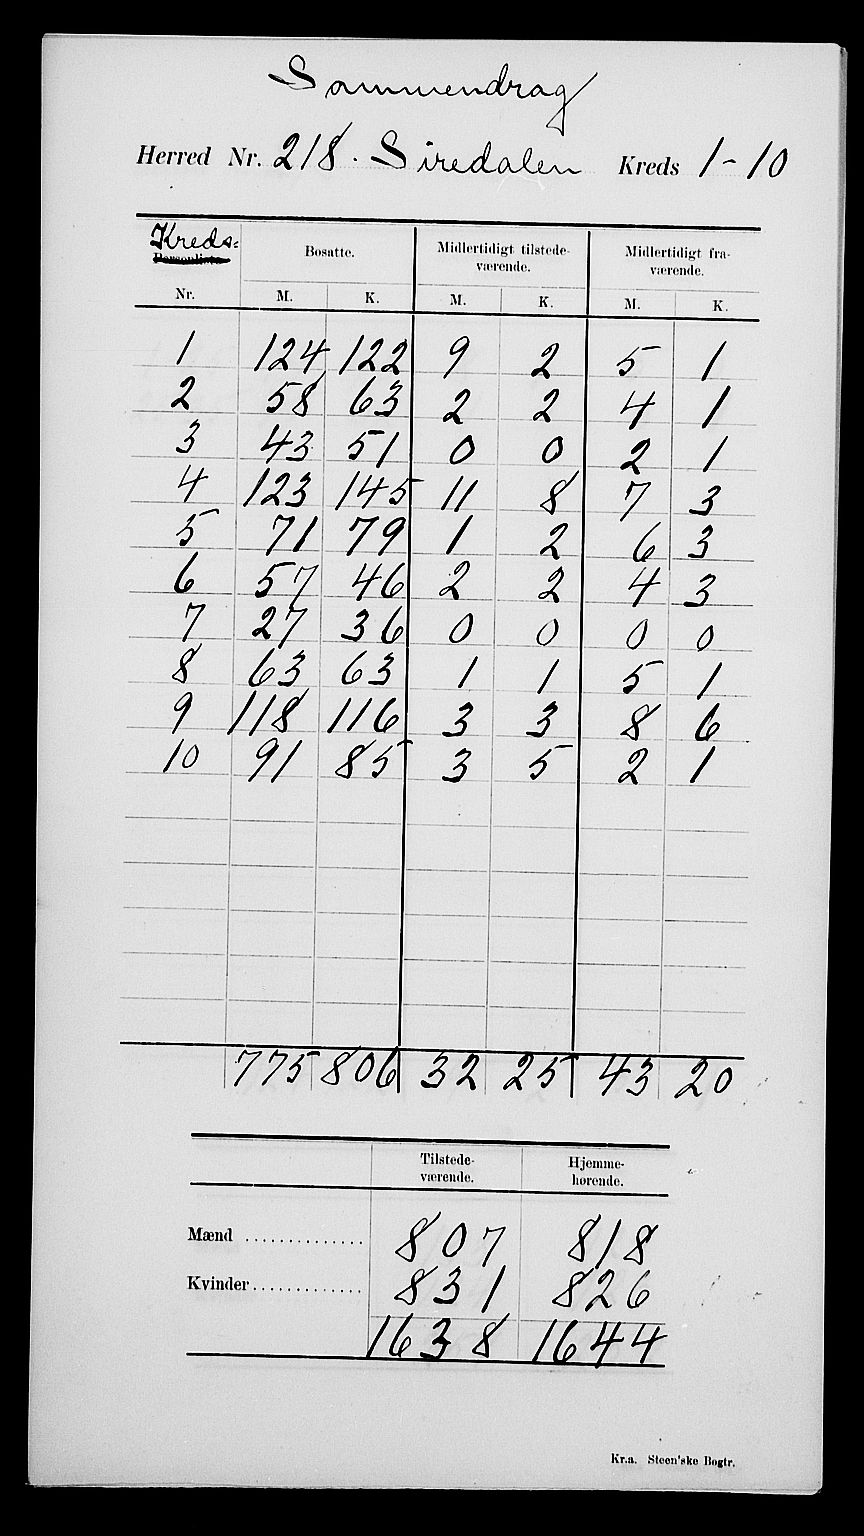 Sammendrag
Herred Nr. 218. Siredalen Kreds 1-10
Kreds-
Personliste Bosatte. Midlertidigt tilstede- Midlertidigt fra-
værende. værende.
Nr. M. K. M. K. M. K.
1 124 122 9 2 5 1
2 58 63 2 2 4 1
3 43 51 0 0 2 1
4 123 145 11 8 7 3
5 71 79 1 2 6 3
6 57 46 2 2 4 3
7 27 36 0 0 0 0
8 63 63 1 1 5 1
9 118 116 3 3 8 6
10 91 85 3 5 2 1
775 806 32 25 43 20
Tilstede- Hjemme-
værende. hørende.
Mænd .............. 807 818
Kvinder............. 831 826
1638 1644
Kr.a. Steen'ske Bogtr.